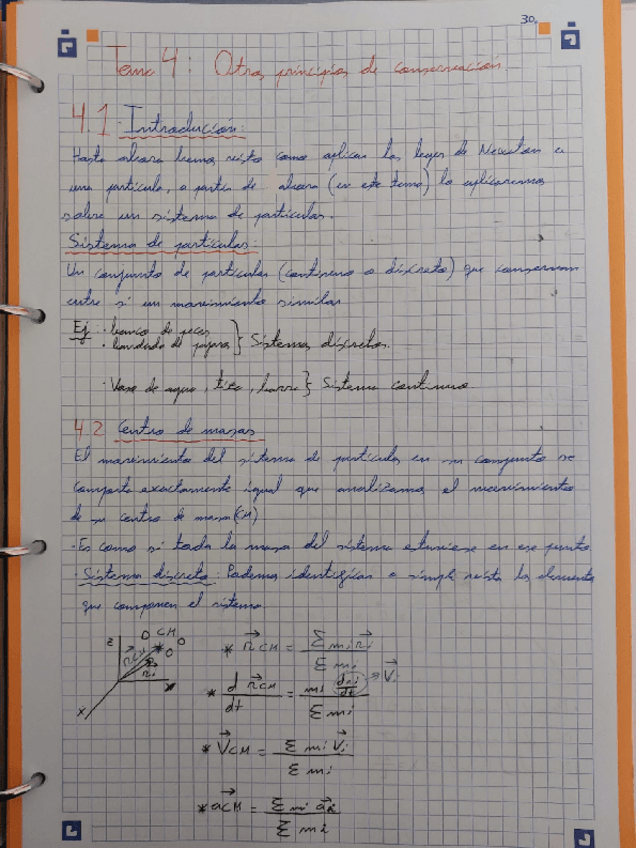 30.
Tema 4: Otros principios de conservación.
4.1 Introducción:
Hasta ahora hemos visto como aplicar las leyes de Newton a
una partícula, a partir de ahora (en este tema) lo aplicaremos
sobre un sistema de partículas.
Sistema de partículas:
Un conjunto de partículas (continuo o discreto) que conservan
entre si un movimiento similar
Ej: · banco de peces
· bandada de pájaros } Sistemas discretos.
· Vaso de agua, tiza, barra } Sistema continuo
4.2 Centro de masas
El movimiento del sistema de partículas en su conjunto se
comporta exactamente igual que analizamos el movimiento
de su centro de masa (CM)
· Es como si toda la masa del sistema estuviese en ese punto
· Sistema discreto: Podemos identificar a simple vista los elementos
que componen el sistema.
z CM
r⃗CM r⃗i
x
* r⃗CM = Σ mi r⃗i / Σ mi
* d r⃗CM / dt = mi (d r⃗i / dt) / Σ mi ⇒ V⃗i
* V⃗CM = Σ mi V⃗i / Σ mi
* a⃗CM = Σ mi a⃗i / Σ mi